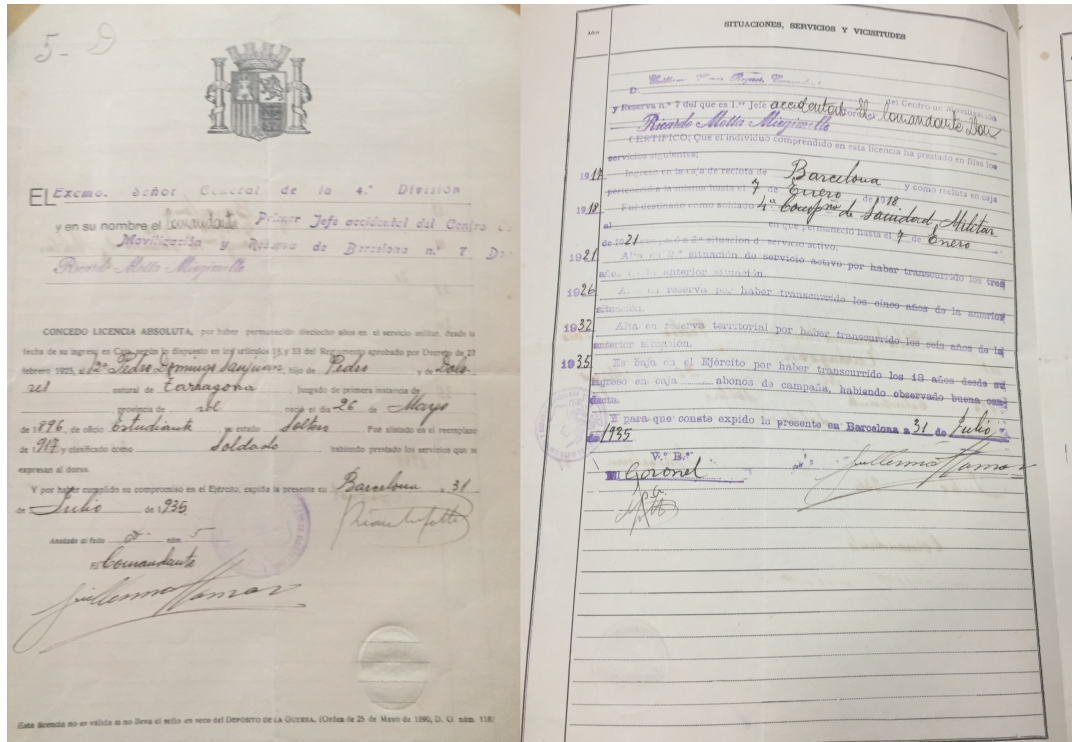 5 - D
EL Excmo. Señor General de la 4.ª División
y en su nombre el Comandante Primer Jefe accidental del Centro de
Movilización y Reserva de Barcelona n.º 7 Don
Ricardo Motta Miegimolle
CONCEDO LICENCIA ABSOLUTA, por haber permanecido dieciocho años en el servicio militar, desde la
fecha de su ingreso en Caja, según lo dispuesto en los artículos 15 y 23 del Reglamento aprobado por Decreto de 27
febrero 1925, al Pedro Domingo Sanjuan, hijo de Pedro y de Dolo-
res natural de Tarragona Juzgado de primera instancia de
provincia de nació el día 26 de Mayo
de 1896, de oficio Estudiante, su estado Soltero Fué alistado en el reemplazo
de 1917 y clasificado como Soldado habiendo prestado los servicios que se
expresan al dorso.
Y por haber cumplido su compromiso en el Ejército, expida la presente en Barcelona a 31
de Julio de 1935
Anotado al folio núm. 5
El Comandante
Guillermo
(Esta licencia no es válida si no lleva el sello en seco del DEPOSITO DE LA GUERRA. (Orden de 25 de Mayo de 1890, D. O. núm. 118)
Años
SITUACIONES, SERVICIOS Y VICISITUDES
D.
del Centro de Movilización
y Reserva n.º 7 del que es 1.er Jefe accidental el Comandante Don
Ricardo Motta Miegimolle
CERTIFICO: Que el individuo comprendido en esta licencia ha prestado en filas los
servicios siguientes:
1917 Ingresó en la caja de recluta de Barcelona y como recluta en caja
perteneció a la misma hasta el 7 de Enero de 1918.
1918 Fué destinado como soldado 4ª Compª de Sanidad Militar
en que permaneció hasta el 7 de Enero
de 1921
1921 Alta en 2.ª situación de servicio activo por haber transcurrido los tres
años de la anterior situación.
1926 Alta en reserva por haber transcurrido los cinco años de la anterior
situación.
1932 Alta en reserva territorial por haber transcurrido los seis años de la
anterior situación.
1935 Es baja en el Ejército por haber transcurrido los 18 años desde su
ingreso en caja abonos de campaña, habiendo observado buena con-
ducta.
Y para que conste expido la presente en Barcelona a 31 de Julio
de 1935
V.º B.º
El Coronel
Guillermo